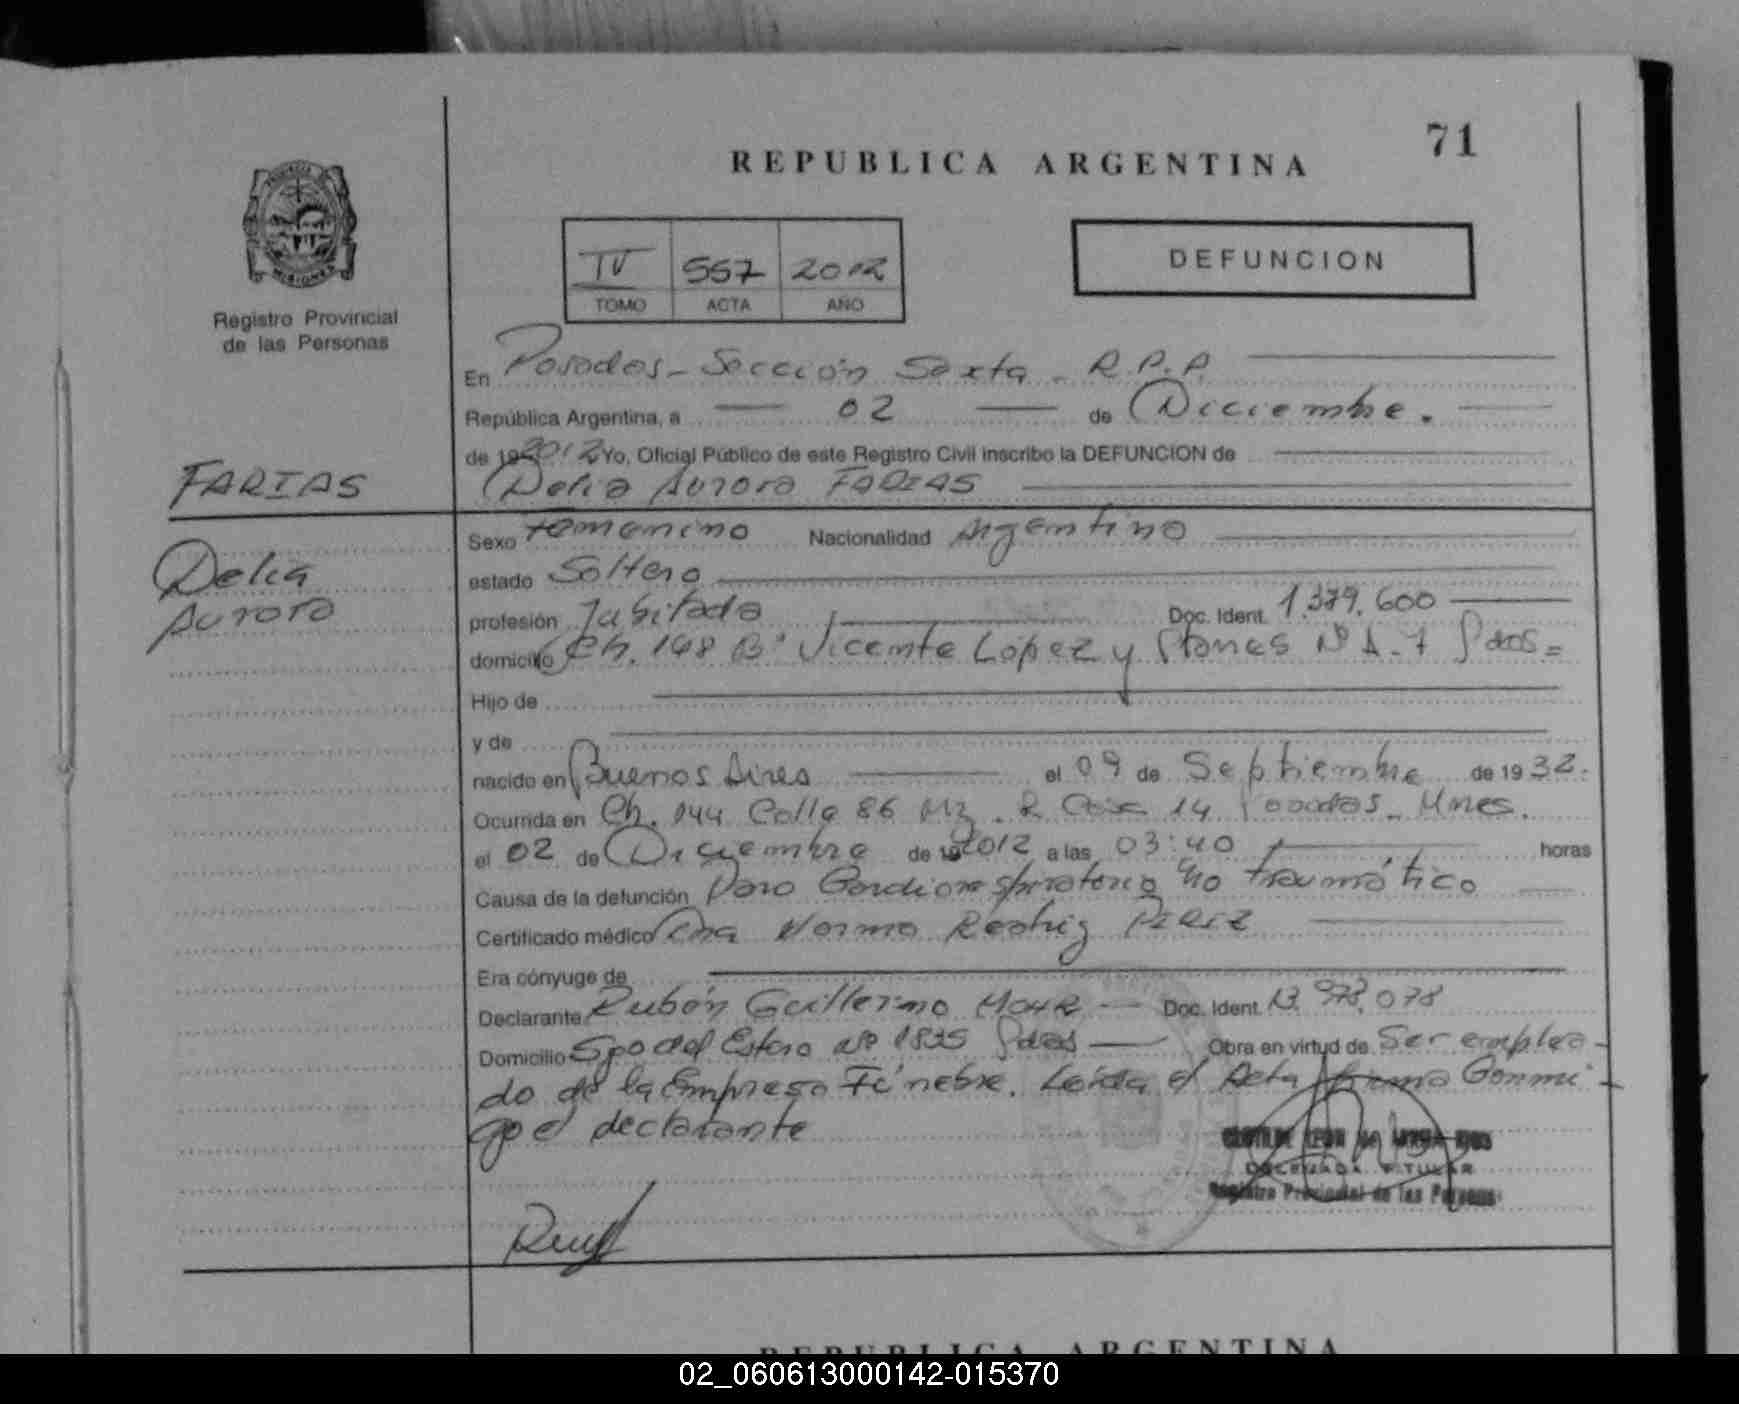 71
REPUBLICA ARGENTINA
IV 557 2012
TOMO ACTA AÑO
DEFUNCION
MISIONES
Registro Provincial
de las Personas
En Posadas - Sección Sexta - R.P.P.
República Argentina, a 02 de Diciembre.
de 19 2012 Yo, Oficial Público de este Registro Civil inscribo la DEFUNCION de
FARIAS
Delia Aurora FARIAS
Sexo Femenino Nacionalidad Argentina
Delia
Aurora
estado Soltera
profesión Jubilada Doc. Ident. 1.379.600
domicilio Ch. 148 B° Vicente López y Planes N° A-7 Pdas =
Hijo de
y de
nacido en Buenos Aires el 09 de Septiembre de 1932.
Ocurrida en Ch. 144 Calle 86 Mz. 2 Casa 14 Posadas - Mnes.
el 02 de Diciembre de 19 2012 a las 03:40 horas
Causa de la defunción Paro Cardiorespiratorio no traumático
Certificado médico Dra Norma Beatriz PEREZ
Era cónyuge de
Declarante Rubén Guillermo Doc. Ident. 13.973.078
Domicilio Sgo del Estero N° 1835 Pdas Obra en virtud de Ser emplea-
do de la Empresa Fúnebre. Leída el Acta firma Conmi-
go el declarante
DELEGADA TITULAR
Registro Provincial de las Personas
REPUBLICA ARGENTINA
02_060613000142-015370